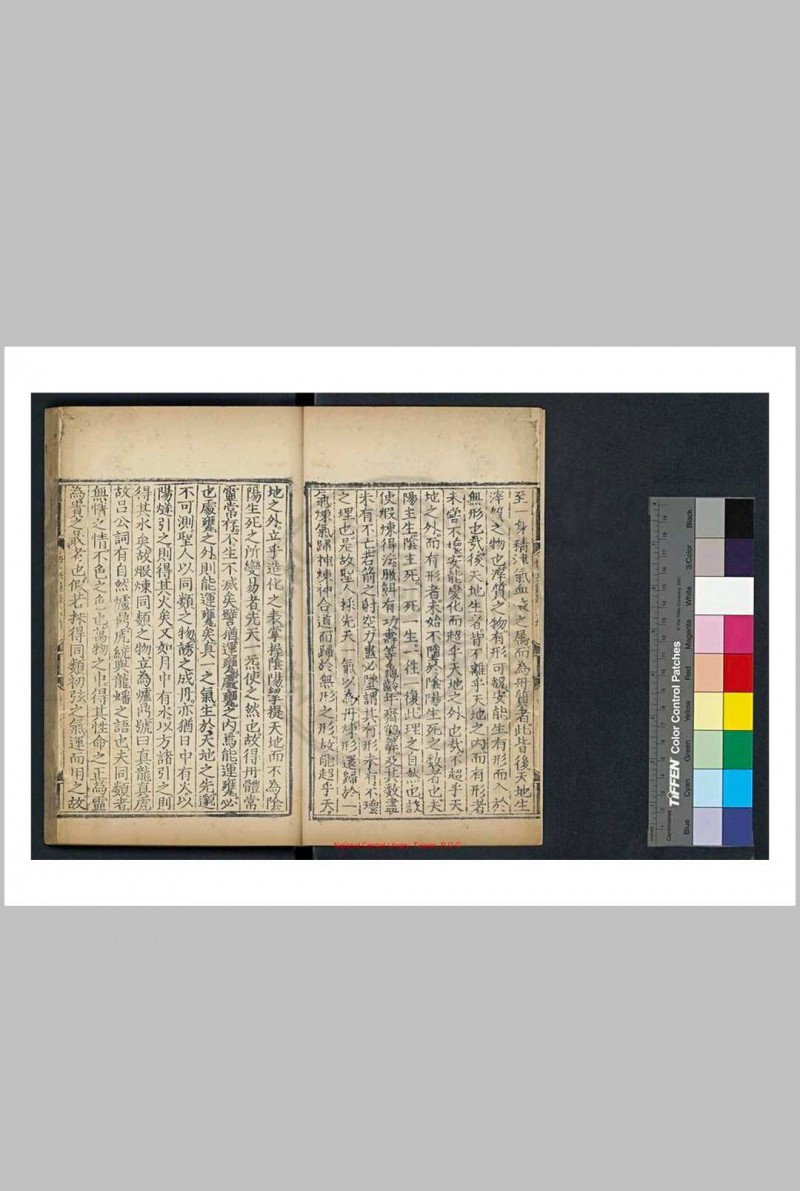 至一身精津氣血液之屬而為丹質者此皆後天地生
滓質之物也滓質之物有形可覩安能生有形而入於
無形也哉後天地生者皆不離乎天地之內而有形者
未嘗不壞安能變化而超乎天地之外也哉不超乎天
地之外而有形者未始不墮於陰陽生死之數者也夫
陽主生陰主死一死一生一往一復此理之自然也設
使假煉得法服餌有功壽等龜齡年齊鶴算及其數盡
未有不亡若箭之射空力盡必墜謂其有形未有不壞
之理也是故聖人採先天一氣以為丹煉形還歸於一
氣煉氣歸神煉神合道而歸於無形之形故能超乎天
地之外立乎造化之表掌握陰陽挈提天地而不為陰
陽生死之所變易者先天一炁使之然也故得丹體常
靈常存不生不滅矣譬猶運甕處甕之內烏能運甕必
也處甕之外則能運甕矣真一之氣生於天地之先邈
不可測聖人以同類之物誘之成丹亦猶日中有火以
陽燧引之則得其火矣又如月中有水以方諸引之則
得其水矣故假煉同類之物立為爐鼎號曰真龍真虎
故呂公詞有自然爐鼎虎繞與龍蟠之語也夫同類者
無情之情不色之色也萬物之中得其性命之正為靈
為貴之最者也假若採得同類初弦之氣運而用之故
National Central Library, Taiwan, R.O.C
TIFFEN Color Control Patches
© The Tiffen Company, 2007
Centimetres
Blue
Cyan
Green
Yellow
Red
Magenta
White
3/Color
Black